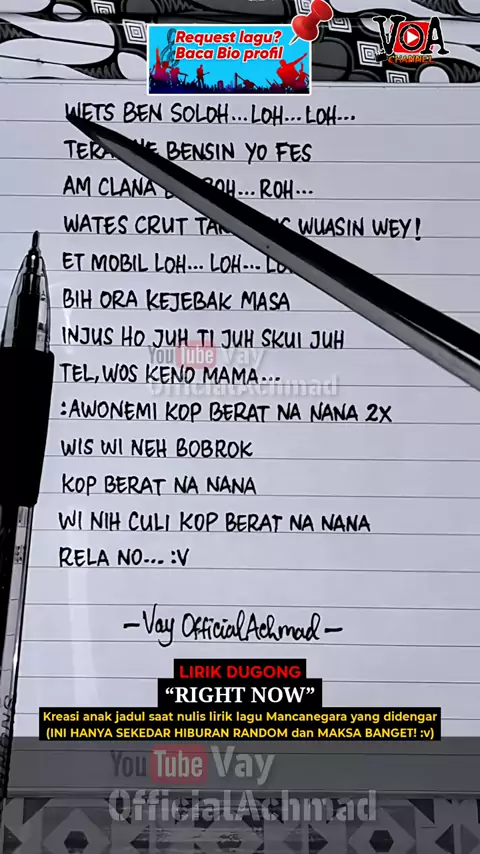 Request lagu?
Baca Bio profil
VOA
CHANNEL
WETS BEN SOLOH...LOH...LOH...
BENSIN YO FES
AM CLANA ROH...
WATES CRUT WUASIN WEY!
ET MOBIL LOH... LOH...
BIH ORA KEJEBAK MASA
INJUS HO JUH TI JUH SKUI JUH
YouTube Vay
OfficialAchmad
TEL,WOS KENO MAMA...
:AWONEMI KOP BERAT NA NANA 2X
WIS WI NEH BOBROK
KOP BERAT NA NANA
WI NIH CULI KOP BERAT NA NANA
RELA NO... :V
-Vay OfficialAchmad-
LIRIK DUGONG
“RIGHT NOW”
Kreasi anak jadul saat nulis lirik lagu Mancanegara yang didengar
(INI HANYA SEKEDAR HIBURAN RANDOM dan MAKSA BANGET! :v)
YouTube Vay
OfficialAchmad